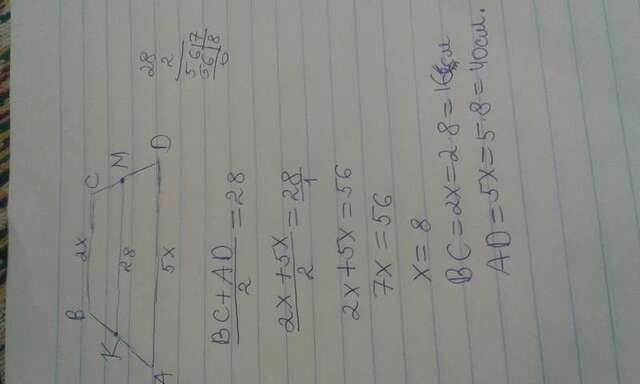 B 2x C
K 28 M
A 5x D
28
2
56|7
56|8
0
BC+AD/2 = 28
2x+5x/2 = 28/1
2x+5x = 56
7x = 56
x = 8
BC = 2x = 2·8 = 16см
AD = 5x = 5·8 = 40см.